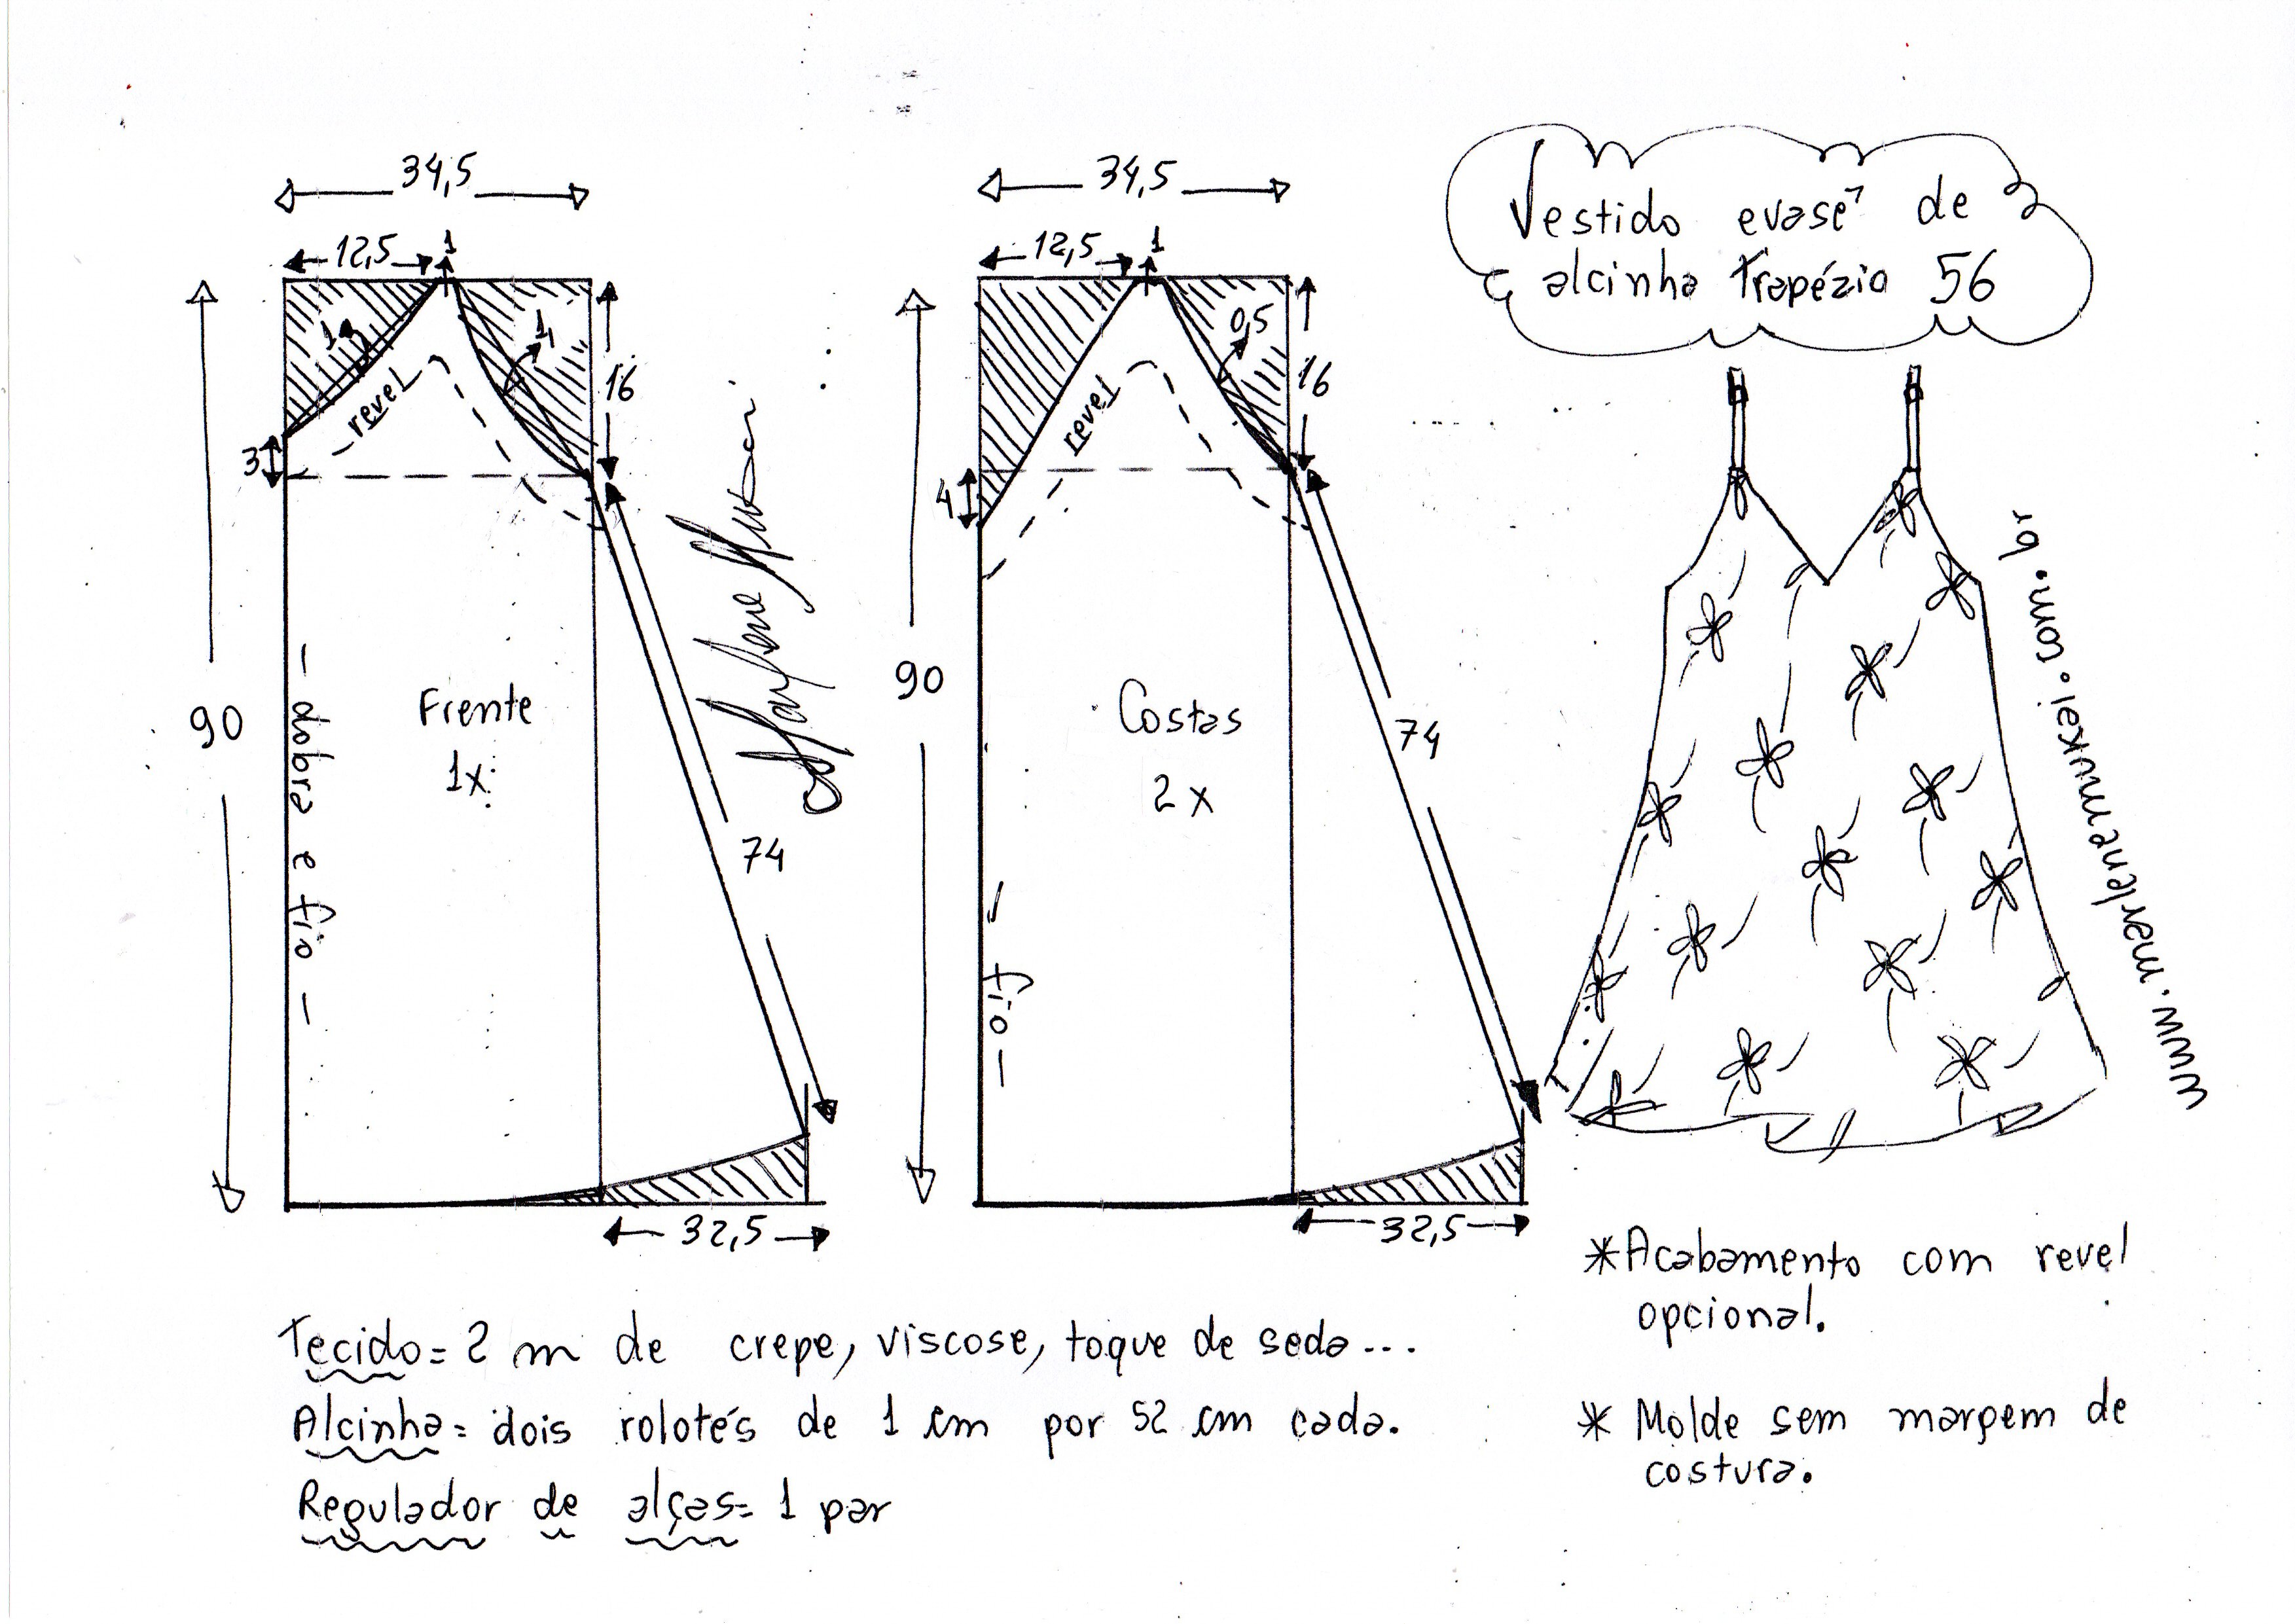 34,5
12,5
1
1
1
16
3
revel
90
Frente
1x
– dobra e fio –
74
32,5
34,5
12,5
1
0,5
16
4
revel
90
Costas
2x
– fio –
74
32,5
Vestido evasê de
alcinha Trapézio 56
www.marlenemukai.com.br
Tecido = 2 m de crepe, viscose, toque de seda...
Alcinha = dois rolotés de 1 cm por 52 cm cada.
Regulador de alças = 1 par
*Acabamento com revel
opcional.
* Molde sem margem de
costura.